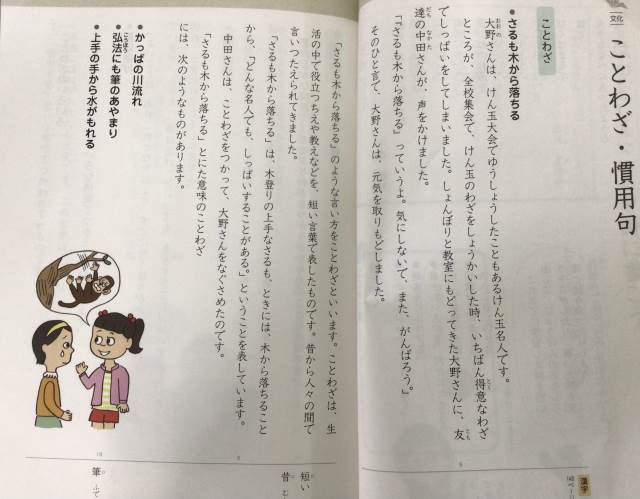 文化
ことわざ・慣用句
ことわざ
●さるも木から落ちる
大野さんは、けん玉大会でゆうしょうしたこともあるけん玉名人です。
ところが、全校集会で、けん玉のわざをしょうかいした時、いちばん得意なわざ
でしっぱいをしてしまいました。しょんぼりと教室にもどってきた大野さんに、友
達の中田さんが、声をかけました。
「『さるも木から落ちる』っていうよ。気にしないで、また、がんばろう。」
そのひと言で、大野さんは、元気を取りもどしました。
「さるも木から落ちる」のような言い方をことわざといいます。ことわざは、生
活の中で役立つちえや教えなどを、短い言葉で表したものです。昔から人々の間で
言いつたえられてきました。
「さるも木から落ちる」は、木登りの上手なさるも、ときには、木から落ちること
から、「どんな名人でも、しっぱいすることがある。」ということを表しています。
中田さんは、ことわざをつかって、大野さんをなぐさめたのです。
「さるも木から落ちる」とにた意味のことわざ
には、次のようなものがあります。
●かっぱの川流れ
●弘法にも筆のあやまり
●上手の手から水がもれる
漢字
短い
昔
筆